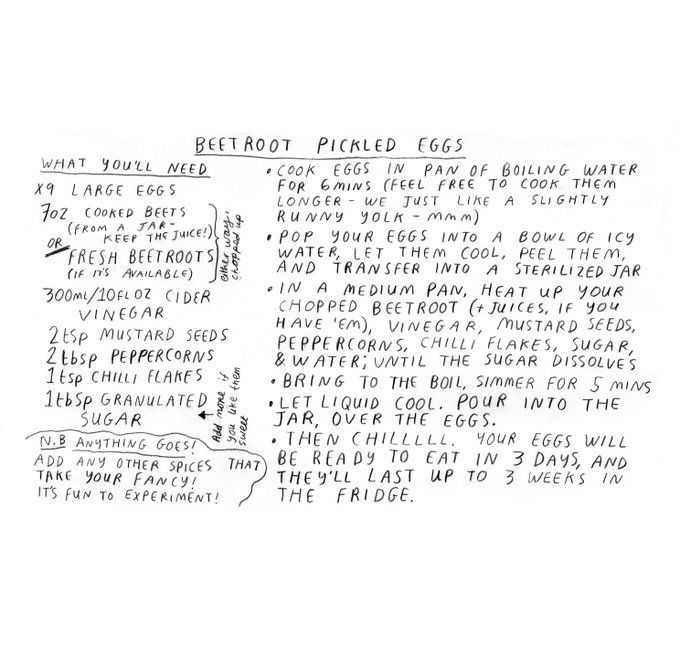 BEETROOT PICKLED EGGS
WHAT YOU'LL NEED
X9 LARGE EGGS
7OZ COOKED BEETS
(FROM A JAR-
KEEP THE JUICE!)
OR
FRESH BEETROOTS
(IF IT'S AVAILABLE)
either way,
chopped up
300ML/10FL OZ CIDER
VINEGAR
2tsp MUSTARD SEEDS
2tbsp PEPPERCORNS
1tsp CHILLI FLAKES
1tbsp GRANULATED
SUGAR
Add more if
you like them
sweet
N.B ANYTHING GOES!
ADD ANY OTHER SPICES THAT
TAKE YOUR FANCY!
IT'S FUN TO EXPERIMENT!
• COOK EGGS IN PAN OF BOILING WATER
FOR 6MINS (FEEL FREE TO COOK THEM
LONGER - WE JUST LIKE A SLIGHTLY
RUNNY YOLK - MMM)
• POP YOUR EGGS INTO A BOWL OF ICY
WATER, LET THEM COOL, PEEL THEM,
AND TRANSFER INTO A STERILIZED JAR
• IN A MEDIUM PAN, HEAT UP YOUR
CHOPPED BEETROOT (+ JUICES, IF YOU
HAVE 'EM), VINEGAR, MUSTARD SEEDS,
PEPPERCORNS, CHILLI FLAKES, SUGAR,
& WATER; UNTIL THE SUGAR DISSOLVES
• BRING TO THE BOIL, SIMMER FOR 5 MINS
• LET LIQUID COOL. POUR INTO THE
JAR, OVER THE EGGS.
• THEN CHILLLLL. YOUR EGGS WILL
BE READY TO EAT IN 3 DAYS, AND
THEY'LL LAST UP TO 3 WEEKS IN
THE FRIDGE.